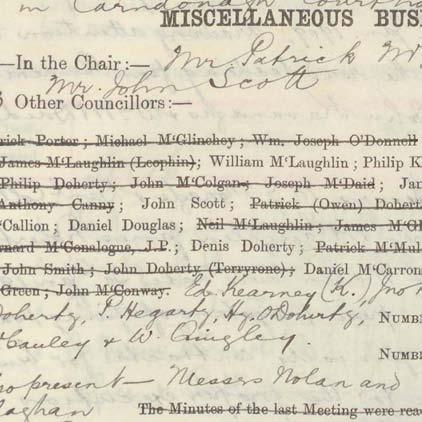 in Carndonagh Courth
MISCELLANEOUS BUS
—In the Chair:— Mr. Patrick Mc
Mr. John Scott
Other Councillors:—
rick Porter; Michael M‘Glinchey; Wm. Joseph O’Donnell
James M‘Laughlin (Leophin); William M‘Laughlin; Philip K
Philip Doherty; John M‘Colgan; Joseph M‘Daid; Jam
Anthony Canny; John Scott; Patrick (Owen) Dohert
‘Callion; Daniel Douglas; Neil M‘Laughlin; James M‘G
nard M‘Conalogue, J.P.; Denis Doherty; Patrick M‘Mul
John Smith; John Doherty (Terryrone); Daniel M‘Carron
Green; John M‘Conway. Ed Kearney (K.), Jno
Doherty, P. Hegarty, Hy. O'Doherty, NUMB
Cauley & W. Quigley. NUMB
so present— Messrs Nolan and
aghan The Minutes of the last Meeting were read